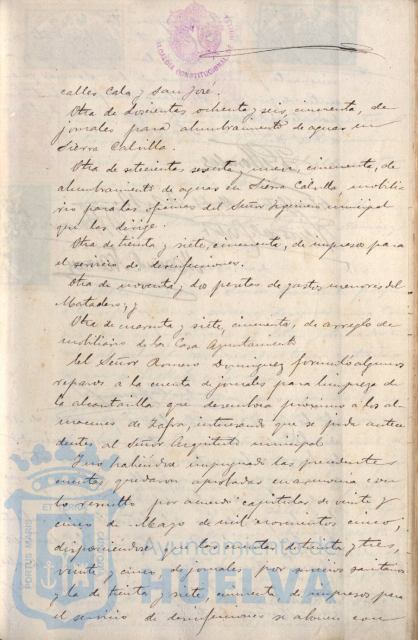 ALCALDIA CONSTITUCIONAL
calles Cala y San José.
Otra de doscientas ochenta y seis, cincuenta, de
jornales para alumbramiento de aguas en
Sierra Calvilla.
Otra de setecientas sesenta y nueve, cincuenta, de
alumbramiento de aguas en Sierra Calvilla, mobilia
rio para las oficinas del Señor Ingeniero municipal
que las dirige.
Otra de treinta y siete, cincuenta, de impresos para
el servicio de desinfecciones.
Otra de noventa y dos pesetas de gastos menores del
Matadero; y
Otra de cuarenta y siete, cincuenta, de arreglo de
mobiliario de la Casa Ayuntamiento
El Señor Romero Dominguez formuló algunos
reparos a la cuenta de jornales para limpieza de
la alcantarilla que desemboca próximo a los al-
macenes de Zafra, interesando que se pida antece
dentes al Señor Arquitecto municipal
Y no habiéndose impugnado las precedentes
cuentas quedaron aprobadas en armonia con
lo resuelto por acuerdo capitular de veinte y
cinco de Mayo de mil novecientos cinco,
disponiendose que las cuentas de treinta y tres,
veinte y cinco de jornales por servicios sanitarios
y la de treinta y siete, cincuenta de impresos para
el servicio de desinfecciones se abonen con
PORTUS MARIS
Ayuntamiento de
HUELVA